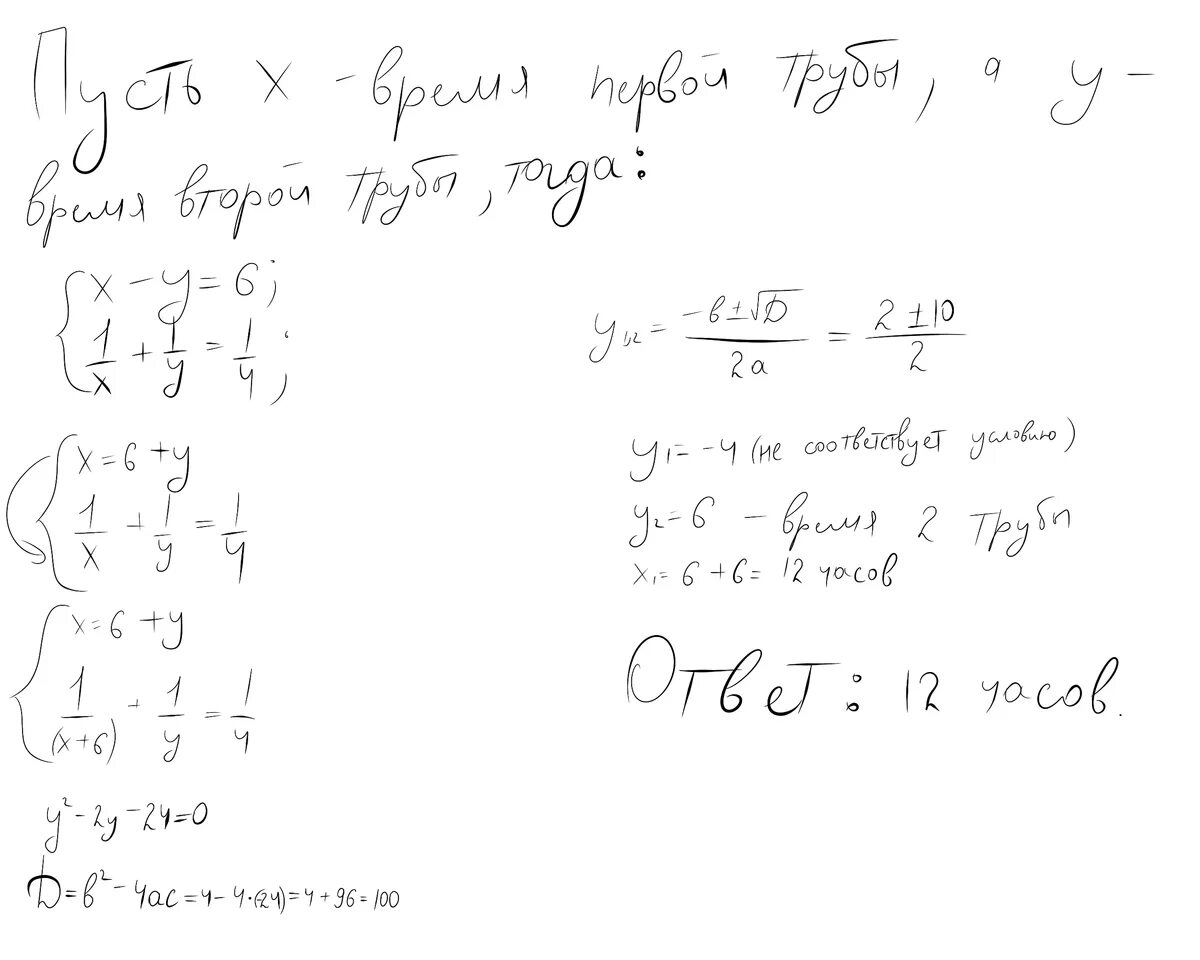 Пусть x - время первой трубы, а y -
время второй трубы, тогда:
x - y = 6;
1/x + 1/y = 1/4;
x = 6 + y
1/x + 1/y = 1/4
x = 6 + y
1/(x+6) + 1/y = 1/4
y² - 2y - 24 = 0
D = b² - 4ac = 4 - 4·(-24) = 4 + 96 = 100
y₁,₂ = (-b ± √D)/2a = (2 ± 10)/2
y₁ = -4 (не соответствует условию)
y₂ = 6 - время 2 трубы
x₁ = 6 + 6 = 12 часов
Ответ: 12 часов.